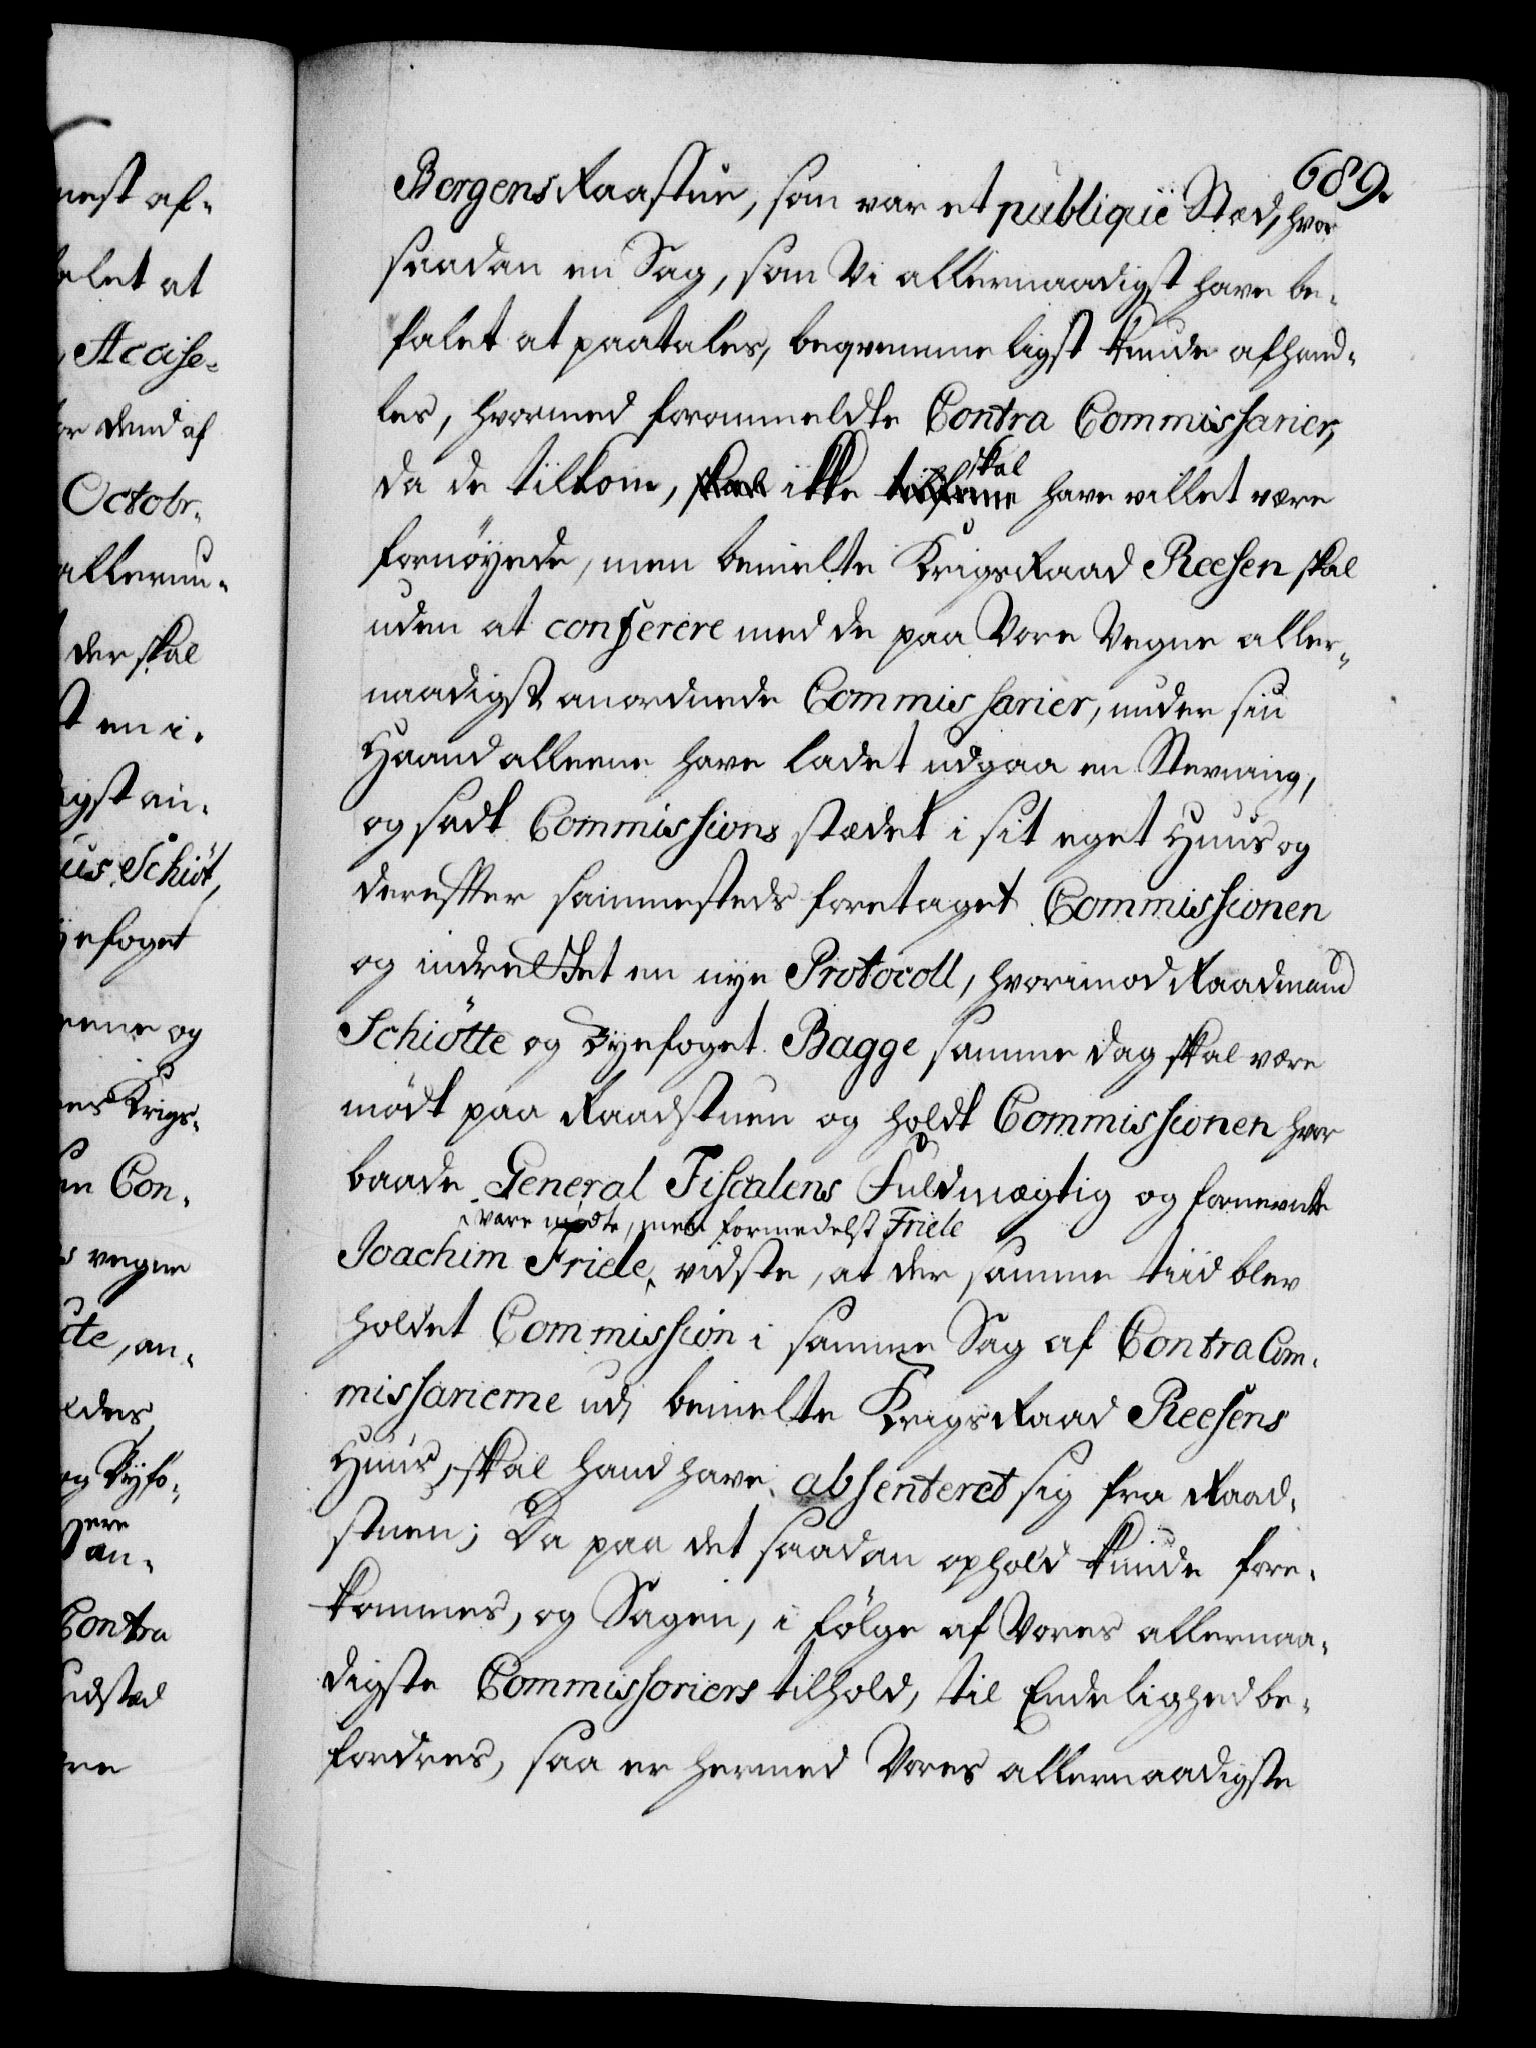 689.
nest af-
Bergens Raastue, som var et publiqüe Stæd, hvor
alet at
saadan en Sag, som Vi allernaadigst have be-
Accise-
falet at paatales, beqvemmeligst kunde afhand-
or dend af
les, hvormed forommeldte Contra Commissarier,
Octobr.
da de tilkom, skal ikke skal have villet være
allerun-
fornöyede, men bemelte KrigsRaad Reesen skal
der skal
uden at conferere med de paa Vore Vegne aller-
t en i-
naadigst anordnede Commissarier, under sin
igst an-
Haand alleene have ladet udgaa en Stevning,
us Schiöt,
og sadt Commissions stædet i sit eget Huus og
yefoget
derefter sammesteds foretaget Commissionen
og indrettet en nye Protocoll, hvorimod Raadmand
eene og
Schiötte og Byefoget Bagge samme dag skal være
es Krigs-
mödt paa Raadstuen og holdt Commissionen hvor
en Con-
baade General Fiscalens Fuldmægtig og fornevnte
vare mödte, men formedelst Friele
s vegne
Joachim Friele, vidste, at der samme tiid blev
cte, an-
holdet Commission i samme Sag af Contra Com-
eldes,
missarierne udj bemelte KrigsRaad Reesens
og Byfo-
Huus, skal hand have absenteret sig fra Raad-
ere
an-
stuen; Da paa det saadan ophold kunde fore-
Contra
kommes, og Sagen, i fölge af Vores allernaa-
udstæd
digste Commissoriers tilhold, til Endelighed be-
re
fordres, saa er hermed Vores allernaadigste